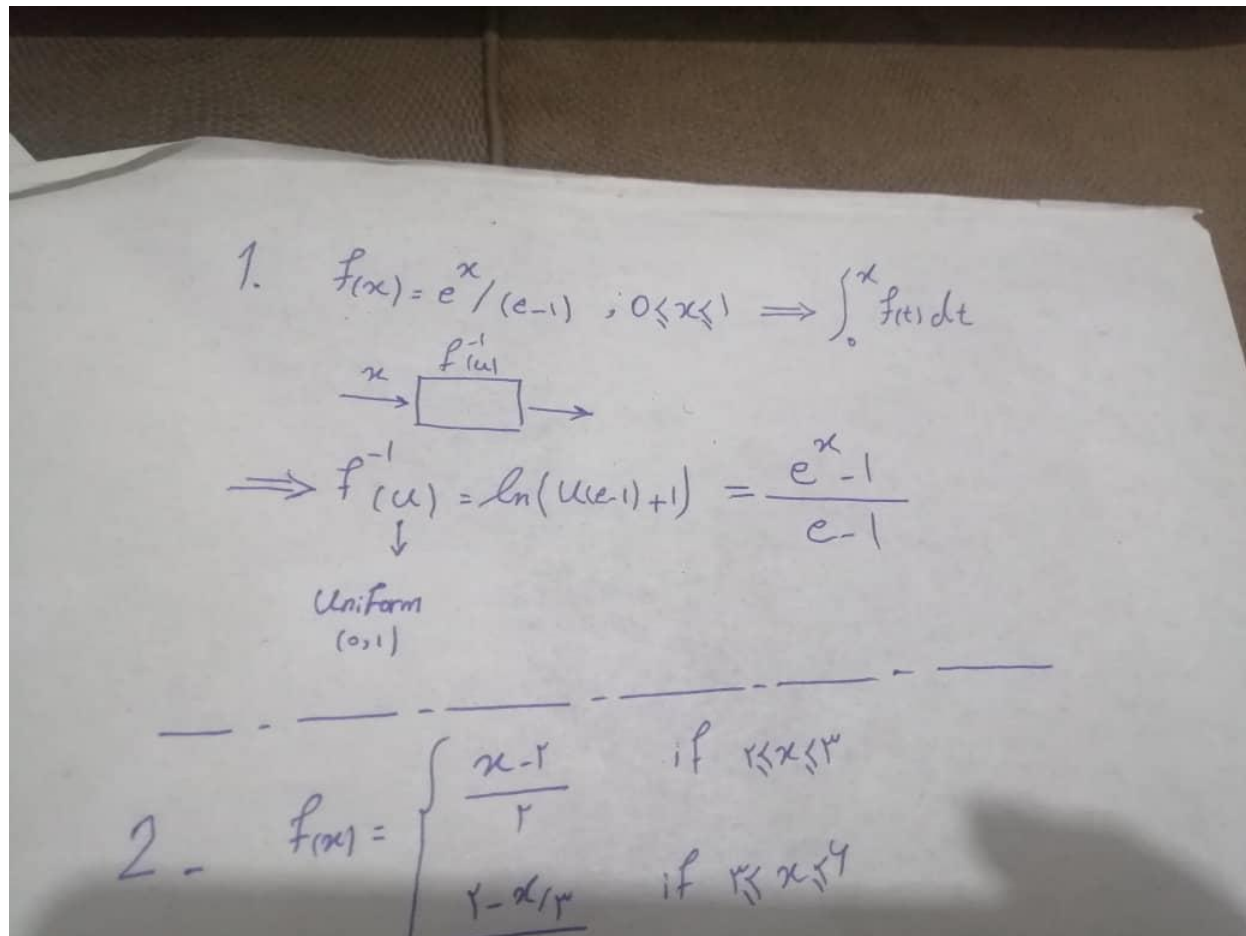 1. f(x) = e^x/(e-1) ; 0≤x≤1 ⟹ ∫₀^x f(t) dt
x → f^-1(u) →
⟹ f^-1(u) = ln(u(e-1)+1) = (e^x-1)/(e-1)
↓
Uniform
(0,1)
2- f(x) = { (x-۲)/۲ if ۲≤x≤۳
(۲-x/۳)/ if ۳≤x≤۶